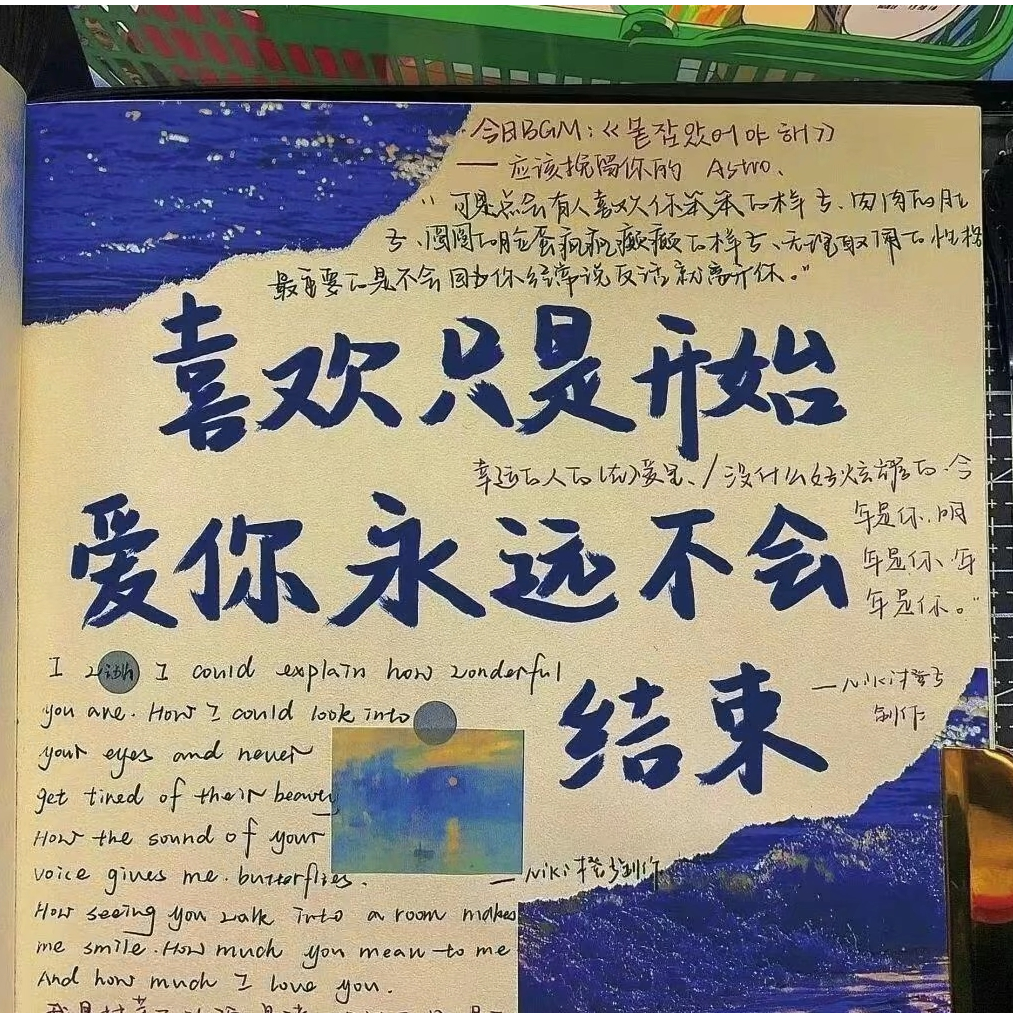 今日BGM:《붙잡았어야 해》
——应该挽留你的 Astro.
"可是总会有人喜欢你笨笨的样子、肉肉的肚
子、圆圆的脸蛋疯疯癫癫的样子、无理取闹的性格
最重要的是不会因为你经常说反话就离开你。"
喜欢只是开始
幸运的人的 爱是、/没什么好炫耀的.今
爱你永远不会
年是你.明
年是你、年
年是你。"
I wish I could explain how wonderful
结束
—Niki橙子
创作
you are. How I could look into
your eyes and never
get tired of their beauty
How the sound of your
voice gives me butterflies.
—Niki橙子创作
How seeing you walk into a room makes
me smile. How much you mean to me
And how much I love you.